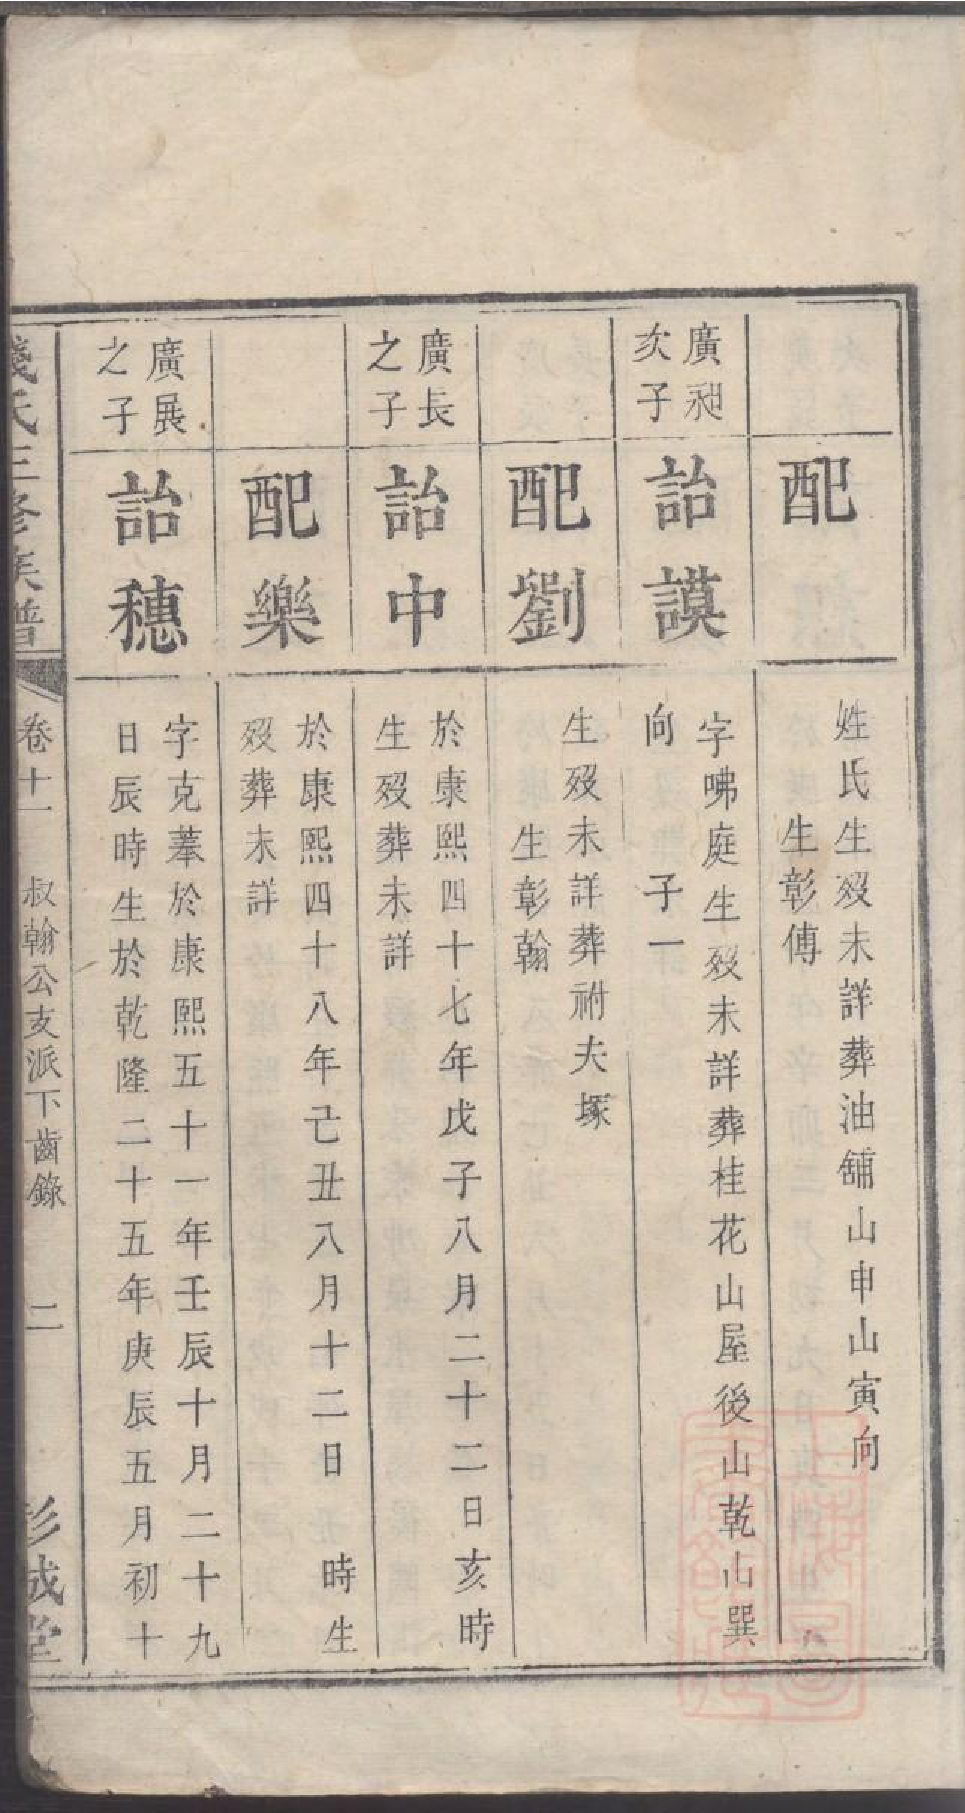 配
姓氏生歿未詳葬油舖山申山寅向
生彰傅
廣昶
次子
詒謨
字咈庭生歿未詳葬桂花山屋後山乾山巽
向　　子一
配劉
生歿未詳葬祔夫塚
生彰翰
廣長
之子
詒中
於康熙四十七年戊子八月二十二日亥時
生歿葬未詳
配樂
於康熙四十八年己丑八月十二日　時生
歿葬未詳
廣展
之子
詒穗
字克菶於康熙五十一年壬辰十月二十九
日辰時生於乾隆二十五年庚辰五月初十
錢氏三修族譜
卷十一　叔翰公支派下齒錄　二
彭城堂